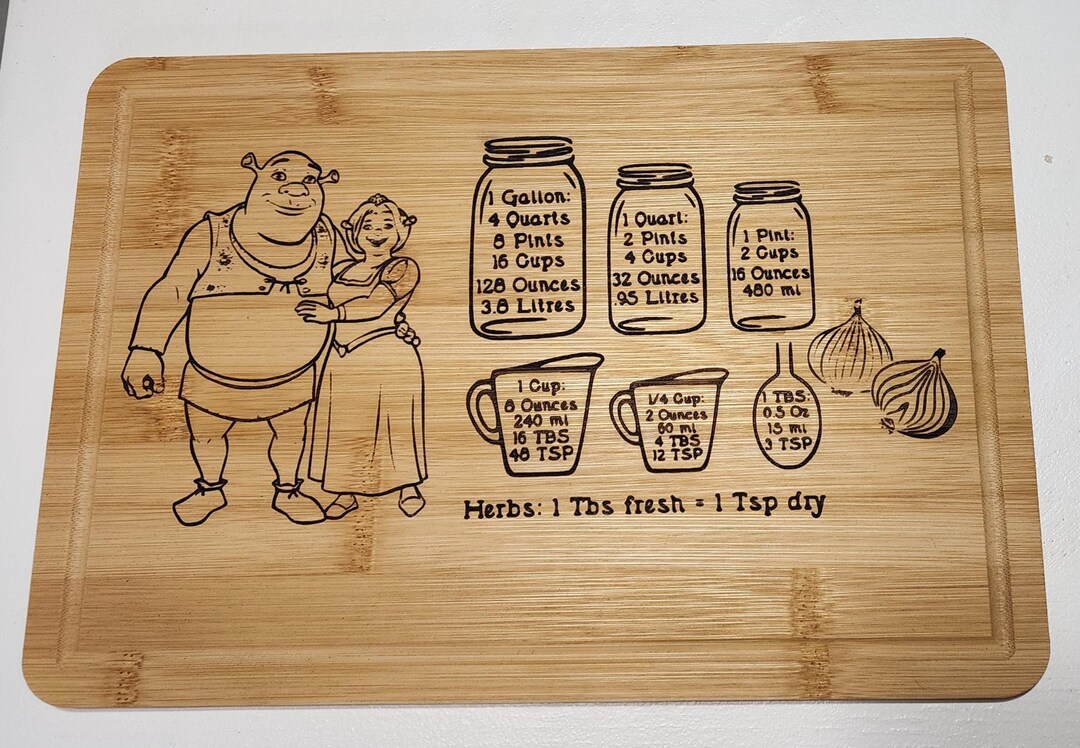 1 Gallon:
4 Quarts
8 Pints
16 Cups
128 Ounces
3.8 Litres
1 Quart:
2 Pints
4 Cups
32 Ounces
.95 Litres
1 Pint:
2 Cups
16 Ounces
480 ml
1 Cup:
8 Ounces
240 ml
16 TBS
48 TSP
1/4 Cup:
2 Ounces
60 ml
4 TBS
12 TSP
1 TBS:
0.5 Oz
15 ml
3 TSP
Herbs: 1 Tbs fresh = 1 Tsp dry